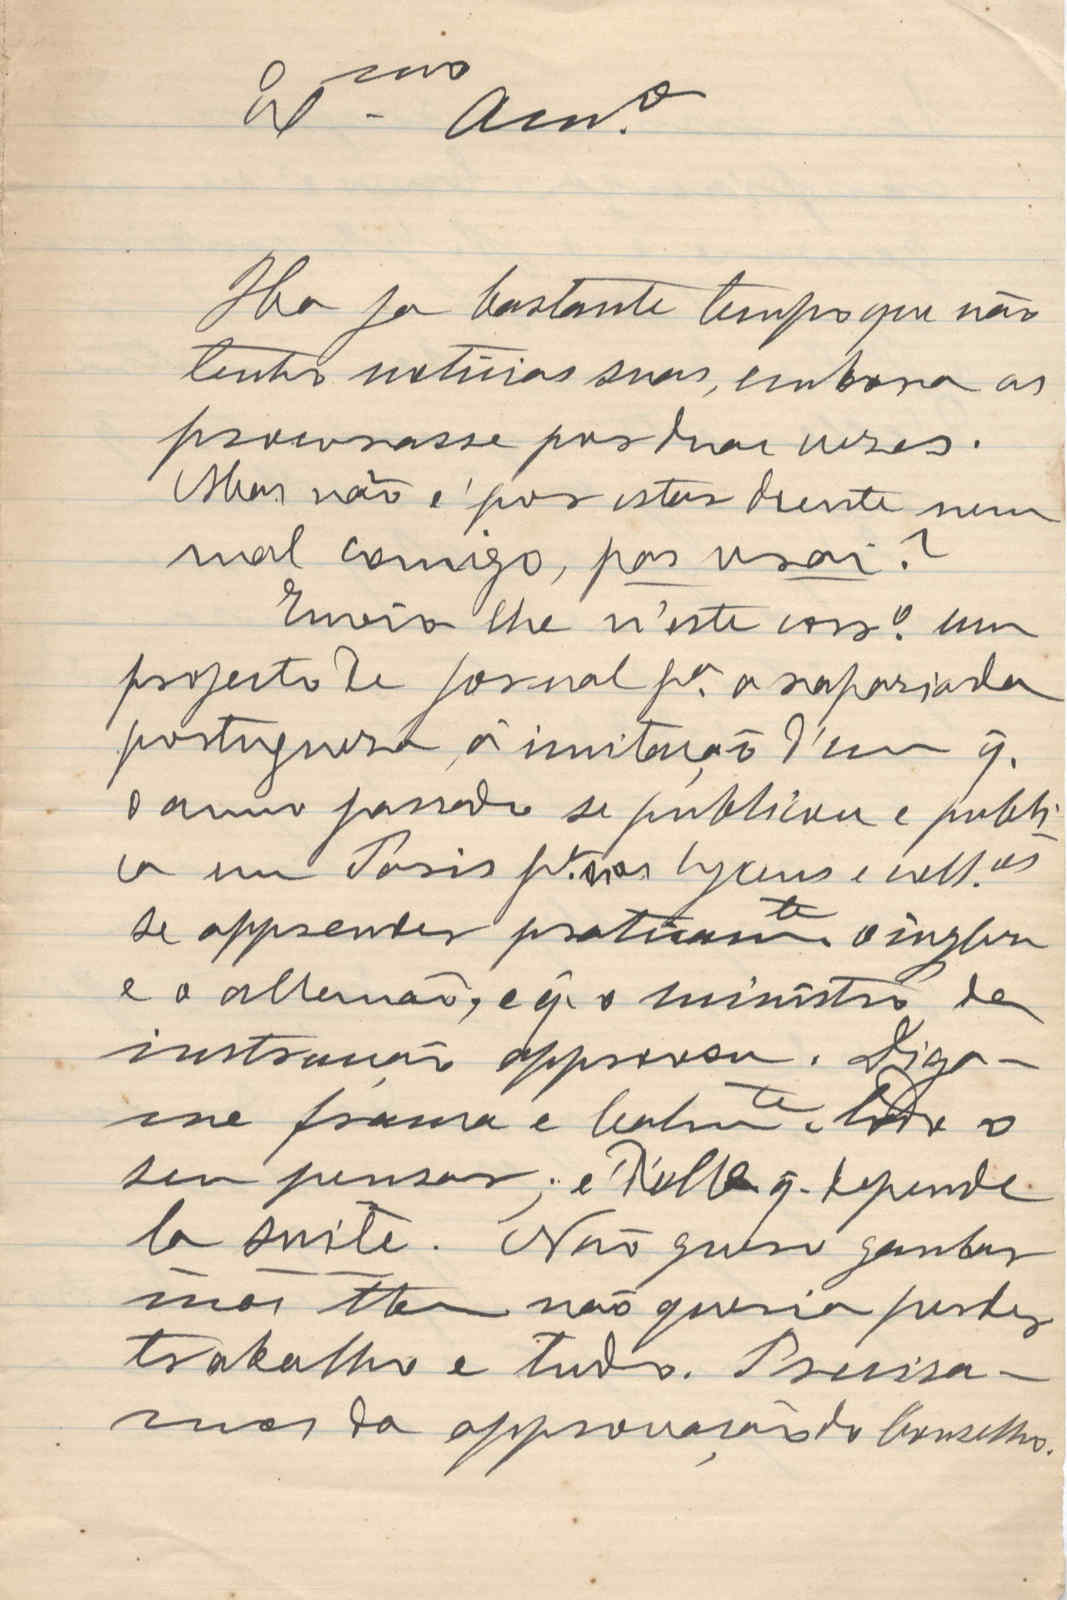 Ex.mo Am.o
Ha ja bastante tempo que não
tenho noticias suas, embora as
procurasse por duas vezes.
Mas não é por estar doente nem
mal comigo, pas vrai?
Envio lhe n'este corr.o um
projecto de jornal p.a a rapaziada
portugueza, á imitação d'um q.
o anno passado se publicou e publi-
ca em Paris p.a nos lyceus e coll.os
se apprender praticam.te o inglez
e o allemão, e q. o ministro da
instrucção approvou. Diga-
me franca e lealm.te todo o
seu pensar; é d'elle q. depende
la suite. Não quero ganhar
mas não queria perder
trabalho e tudo. Precisa-
mos da approvação do Conselho.